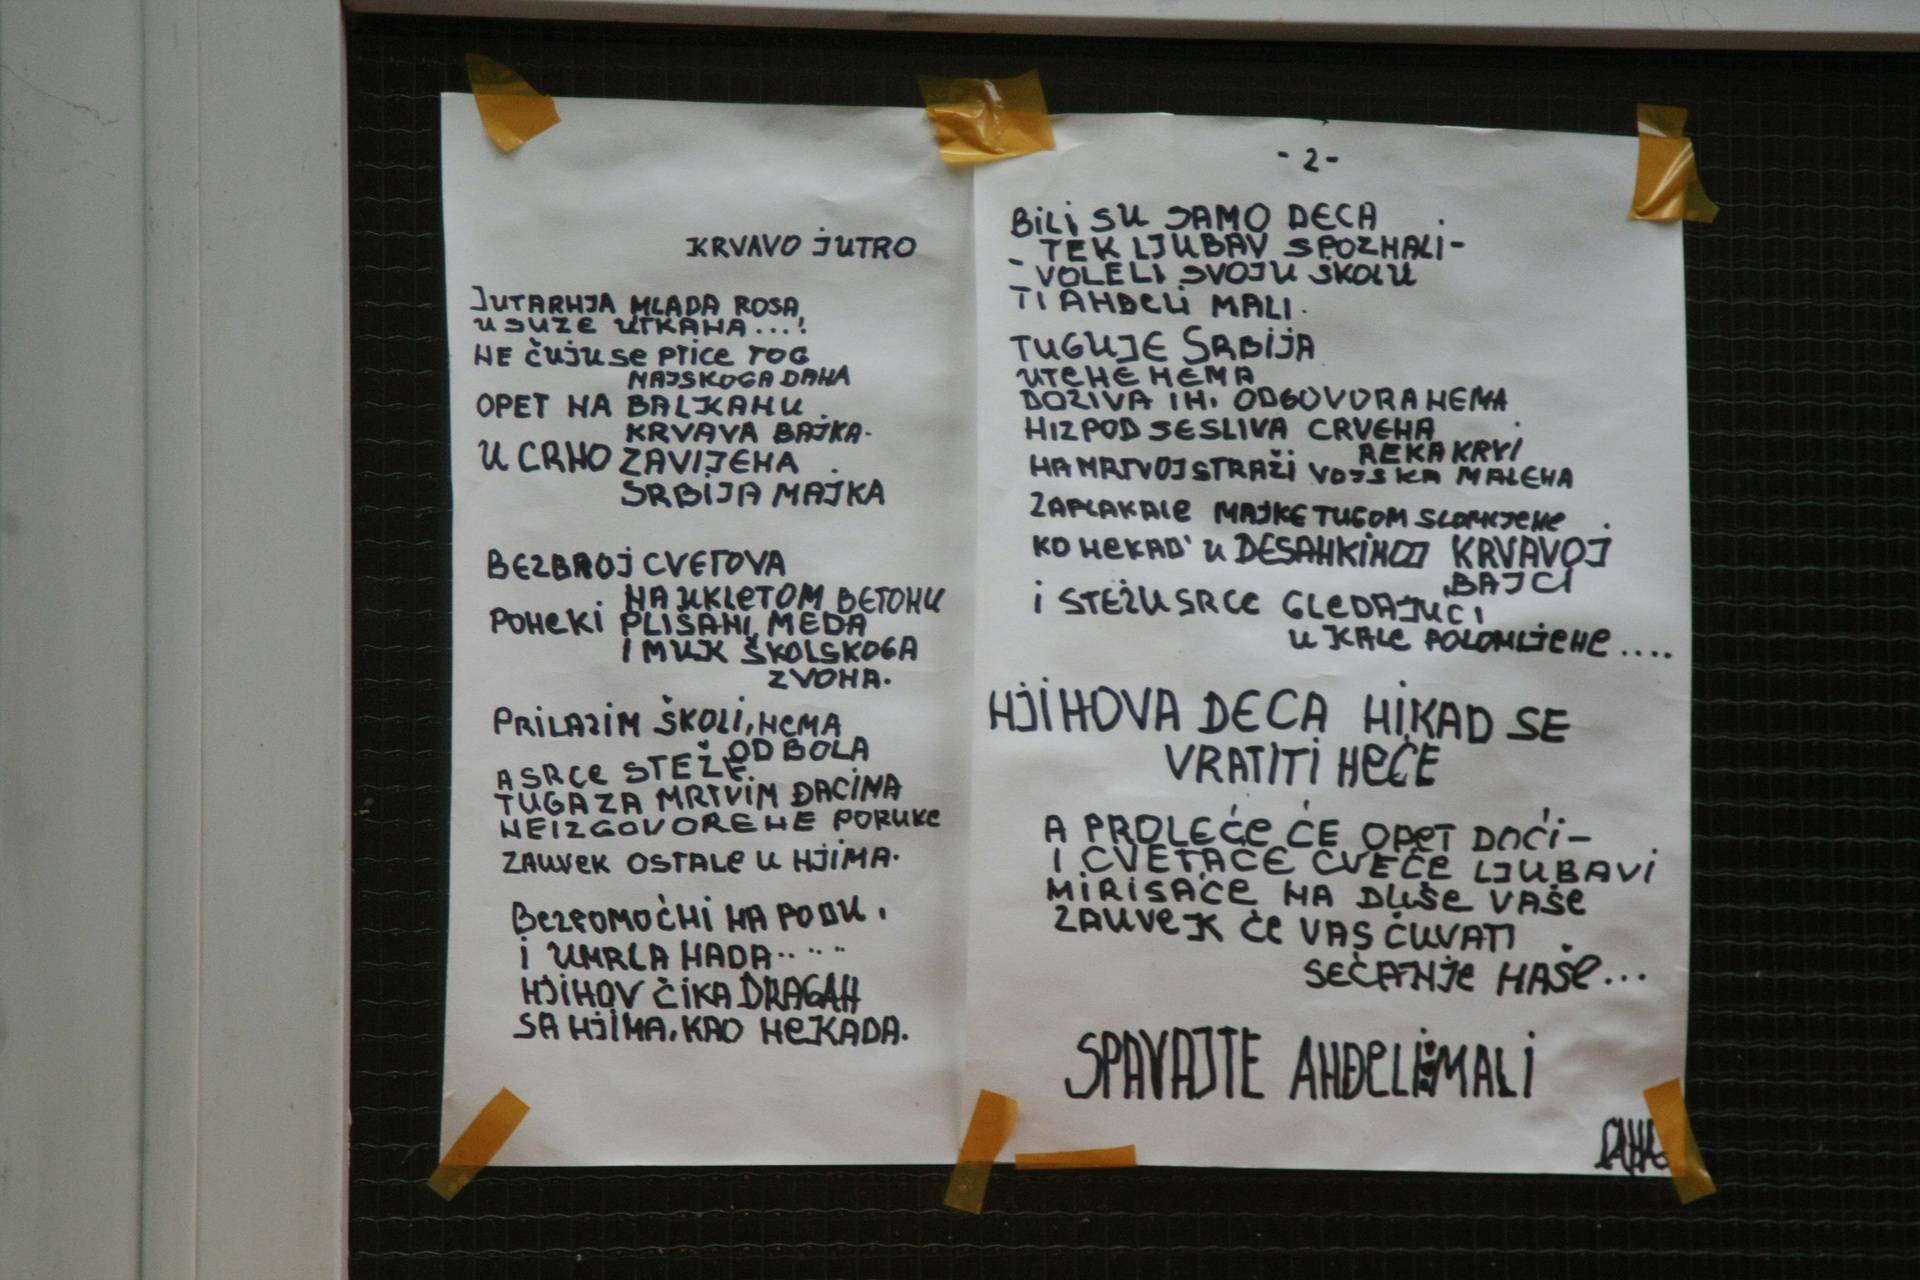 KRVAVO JUTRO
JUTARHJA MLADA ROSA
U SUZE UTKAHA...!
HE ČUJU SE PTICE TOG
MAJSKOGA DAHA
OPET HA BALKAHU
KRVAVA BAJKA.
U CRHO ZAVIJEHA
SRBIJA MAJKA
BEZBROJ CVETOVA
HA UKLETOM BETOHU
POHEKI PLIŠAHI MEDA
I MUK ŠKOLSKOGA
ZVOHA.
PRILAZIM ŠKOLI, HEMA
OD BOLA
A SRCE STEŽE
TUGA ZA MRTVIM ĐACIMA
HEIZGOVOREHE PORUKE
ZAUVEK OSTALE U HJIMA.
BEZPOMOĆHI HA PODU,
I UMRLA HADA.....
HJIHOV ČIKA DRAGAH
SA HJIMA, KAO HEKADA.
- 2 -
BILI SU SAMO DECA
TEK LJUBAV SPOZHALI-
- VOLELI SVOJU ŠKOLU
TI AHĐELI MALI.
TUGUJE SRBIJA
UTEHE HEMA
DOZIVA IH, ODGOVORA HEMA
HIZ POD SE SLIVA CRVEHA
REKA KRVI
HA MRTVOJ STRAŽI VOJSKA MALEHA
ZAPLAKALE MAJKE TUGOM SLOMLJEHE
KO HEKAD' U DESAHKIHOJ KRVAVOJ
BAJCI
I STEŽU SRCE GLEDAJUCI
U KALE POLOMLJEHE....
HJIHOVA DECA HIKAD SE
VRATITI HEĆE
A PROLEĆE ĆE OPET DOĆI-
I CVETAĆE CVEĆE LJUBAVI
MIRISAĆE HA DUŠE VAŠE
ZAUVEK ĆE VAS ČUVATI
SEĆANJE HAŠE...
SPAVAJTE AHĐELI MALI